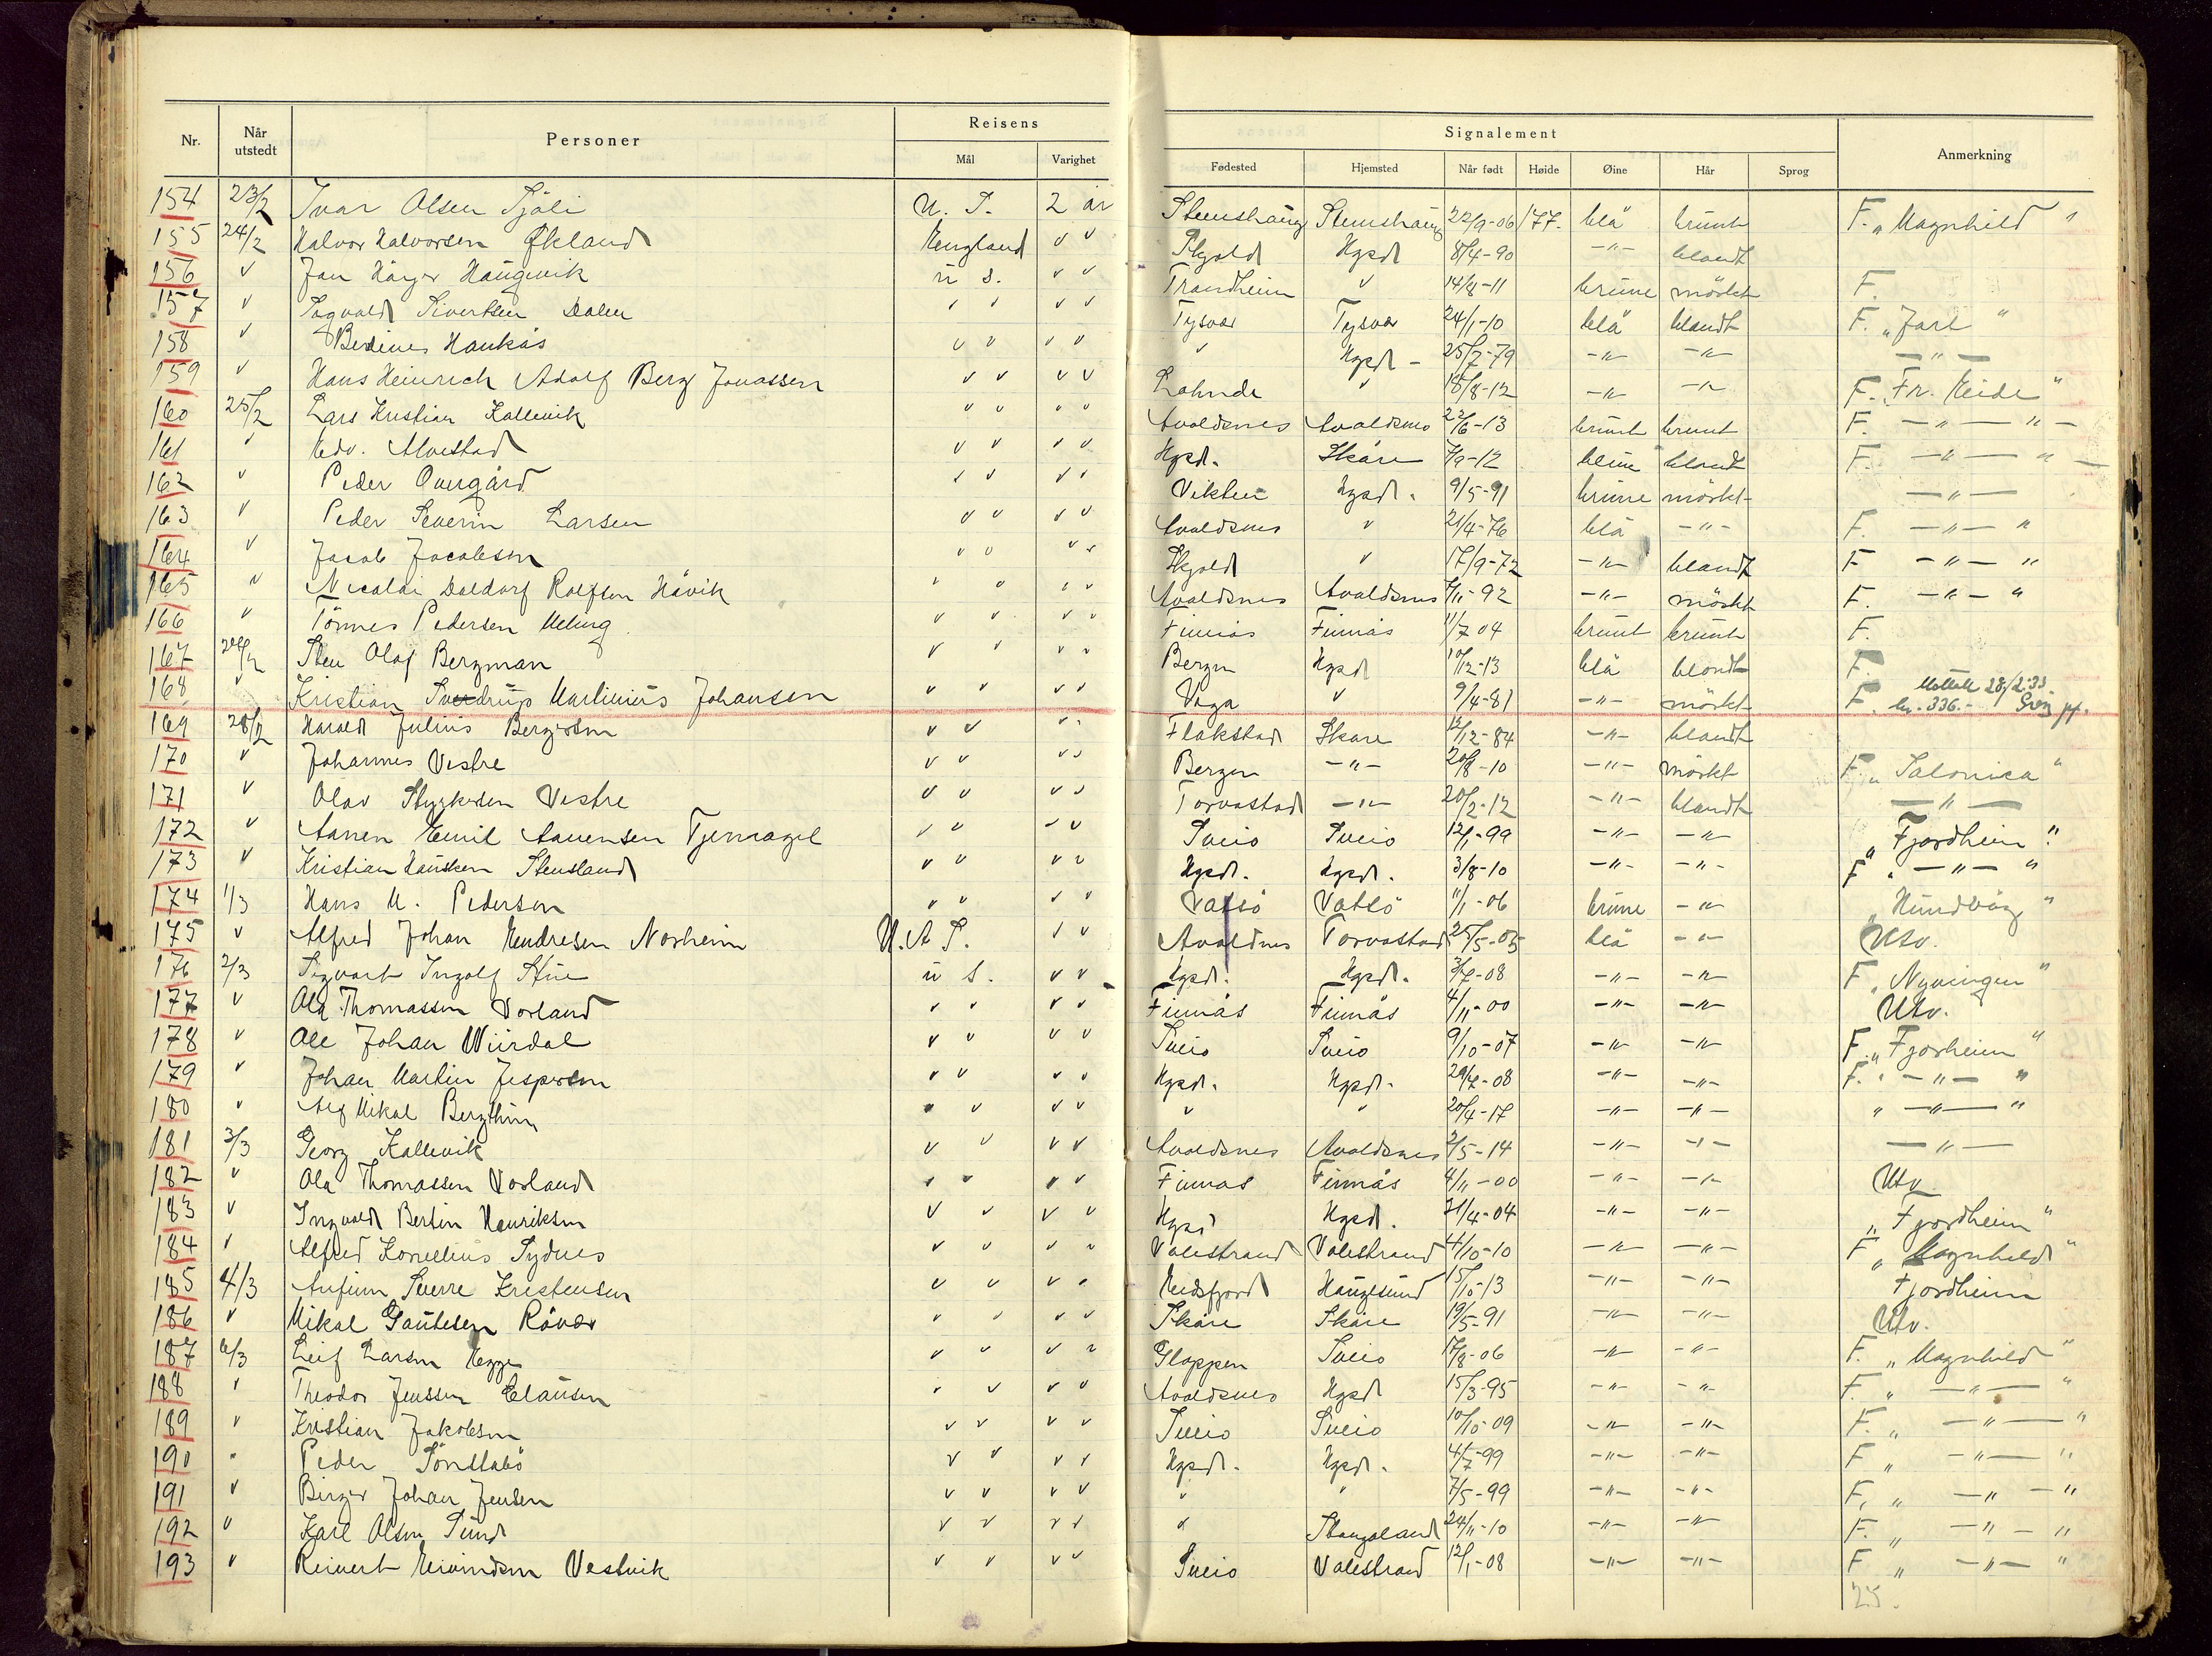 Nr. Når utstedt Personer Reisens Mål Varighet Signalement Fødested Hjemsted Når født Høide Øine Hår Sprog Anmerkning
154 23/2 Ivar Olsen Sjöli U. S. 2 år Stemshaug Stemshaug 22/9-06 177. blå brunt F. „Magnhild"
155 24/2 Halvor Halvorsen Økland England v v Skjold Hgsd 8/4-90 -"- blondt
156 v Jan Haugevik u s. v v Trondheim v 14/8-11 brune mörkt F.
157 v Sigvald Sivertsen Dalen ' ' v v Tysvær Tysvær 24/1-10 blå blondt F. „Jarl"
158 v Berdines Haukås v v v v v Hgsd - 25/7-79 -"- -"- -"-
159 v Hans Heinrich Adolf Berg Jonassen v v v v v 18/8-12 -"- -"- F. „Fr. Eide"
160 25/2 Lars Kristian Kallevik v v v v Avaldsnes Avaldsnes 22/6-13 brunt brunt F. -"- "-
161 v Edv. Alvestad v v v v Hgsd. Skåre 7/9-12 blondt F. -"- "-
162 v Peder Overgård v v v v Vikten Hgsd. 9/5-91 brune mörkt -"-
163 v Peder Severin Larsen v v v v Avaldsnes v 21/4-76 blå -"- F. -"- "
164 v Jacob Jacobsen v v v v Skjold v 17/9-72 -"- blondt F -"- "
165 v Nicolai Daldorf Rolfsen Håvik v v v v Avaldsnes Avaldsnes 7/11-92 -"- mörkt F. -"- "
166 v Tönnes Pedersen Meling v v v v Finnås Finnås 11/7 04 brunt brunt F.
167 26/2 Sten Olaf Bergman v v v v Bergen Hgsd 10/12-13 blå blondt F.
168 v Kristian Sverdrup Martinius Johansen v v v v Våga v 9/4-81 -"- mörkt F. Mottatt 28/2.33. kr. 336.-
169 28/2 Harald Julius Bergersen v v v v Flakstad Skåre 12/12-84 -"- blondt
170 v Johannes Vestre v v v v Bergen -"- 20/8-10 -"- mörkt F. „Salonica"
171 v Olav Styrksen Vestre v v v v Torvastad -"- 20/2-12 -"- blondt -"-
172 v Aanen Emil Aanensen Tjernagel v v v v Sveio Sveio 12/1-99 -"- -"- „Fjordheim".
173 v Kristian Hausken Stensland v v v v Hgsd. Hgsd. 3/8-10 -"- -"- F. -"- "
174 1/3 Hans M. Pedersen v v v v Vatsö Vatsö 11/1-06 brune -"- „Hundvåg"
175 v Alfred Johan Endresen Norheim U. A S. v v Avaldnes Torvastad 25/5-05 blå -"- Utv.
176 2/3 Sigvart Ingolf Stue u s. v v Hgsd. Hgsd. 3/7-08 -"- -"- F. „Nyvingen"
177 v Ola Thomassen Vorland v v v v Finnås Finnås 4/11-00 -"- -"- Utv.
178 v Ole Johan Wiirdal v v v v Sveio Sveio 9/10-07 -"- -"- F. „Fjorheim"
179 v Johan Martin Jespersen v v v v Hgsd. Hgsd. 29/7-08 -"- -"- F. „ -"- "
180 v Alf Mikal Bergthun v v v v v v 20/4-17 -"- -"- „ -"- "
181 3/3 Georg Kallevik v v v v Avaldsnes Avaldsnes 2/5-14 -"- -"- -"-
182 v Ola Thomassen Vorland v v v v Finnås Finnås 4/11-00 -"- -"- Utv.
183 v Ingvald Bertin Henriksen v v v v Hgsd Hgsd. 21/4-04 -"- -"- „Fjordheim"
184 v Alfred Kornelius Sydnes v v v v Valestrand Valestrand 4/10-10 -"- -"- F „Magnhild"
185 4/3 Anfinn Sverre Kristensen v v v v Eidsfjord Haugesund 15/10-13 -"- -"- Fjordheim
186 v Mikal Gautesen Röver v v v v Skåre Skåre 19/5-91 -"- -"- Utv.
187 6/3 Leif Larsen Hegge v v v v Gloppen Sveio 17/8-06 -"- -"- F. „Magnhild"
188 v Theodor Jenssen Clausen v v v v Avaldsnes Hgsd 15/3-95 -"- -"- F. „ -"- "
189 v Kristian Jakobsen v v v v Sveio Sveio 10/10-09 -"- -"- F. „ -"- "
190 " Peder Sönstabö v v v v Hgsd. Hgsd. 4/7-99 -"- -"- F „ -"- "
191 v Birger Johan Jensen v v v v v v 7/5-99 -"- -"- F. „ -"- "
192 v Karl Olsen Sund v v v v v Stangaland 24/11-10 -"- -"- F. „ -"- "
193 v Reinert Eivindsen Vestvik v v v v Sveio Valestrand 12/1-08 -"- -"- F „ -"- "
25.